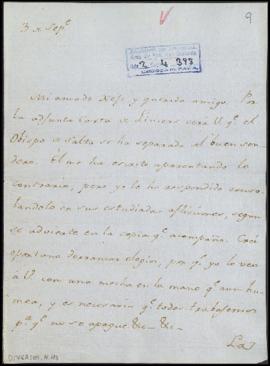 3 de Sepe
9
2 4 393
Mi amado Xefe y querido amigo. Por
la adjunta Carta de Liniers verá U. qe. el
Obispo de Salta se ha separado del buen sen
dero. El me ha escrito aparentando lo
contrario, pero yo le he respondido consu
lándolo en sus estudiadas aflicciones, segun
se advierte en la copia qe. acompaña. Creí
oportuno derramar elogios, por qe. yo lo veo
à U. con una mecha en la mano qe. aun hu
mea, y es necesario qe. todos trabajemos
pa. qe. no se apague &c. &c.
La
DIVERSOS, N.